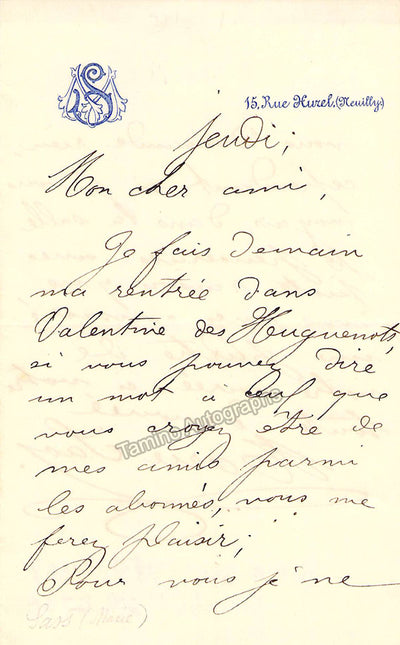 15, Rue Hurel. (Neuilly)
jeudi;
Mon cher ami,
Je fais demain
ma rentrée dans
Valentine des Huguenots,
si vous pouvez dire
un mot à ceux que
vous croyez être de
mes amis parmi
les abonnés, vous me
ferez plaisir;
Pour vous je ne
Sass (Marie)
Tamino Autographs